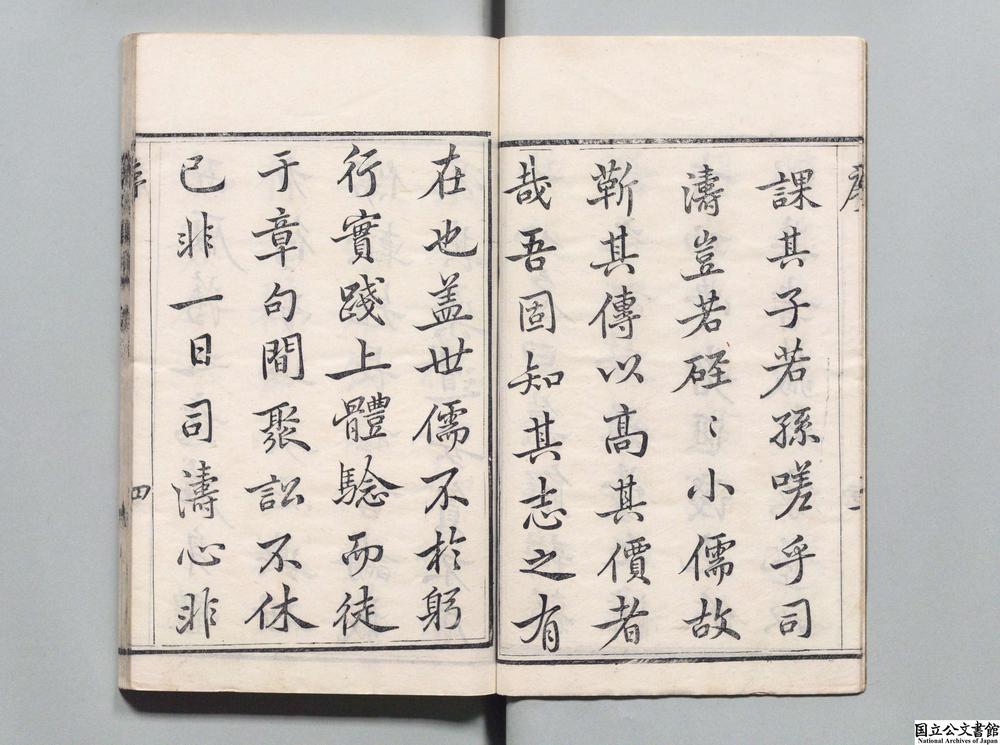 課其子若孫嗟乎司
濤豈若硜〻小儒故
靳其傳以高其價者
哉吾固知其志之有
在也盖世儒不於躬
行實踐上體驗而徒
于章句間聚訟不休
已非一日司濤心非
序
四
国立公文書館
National Archives of Japan